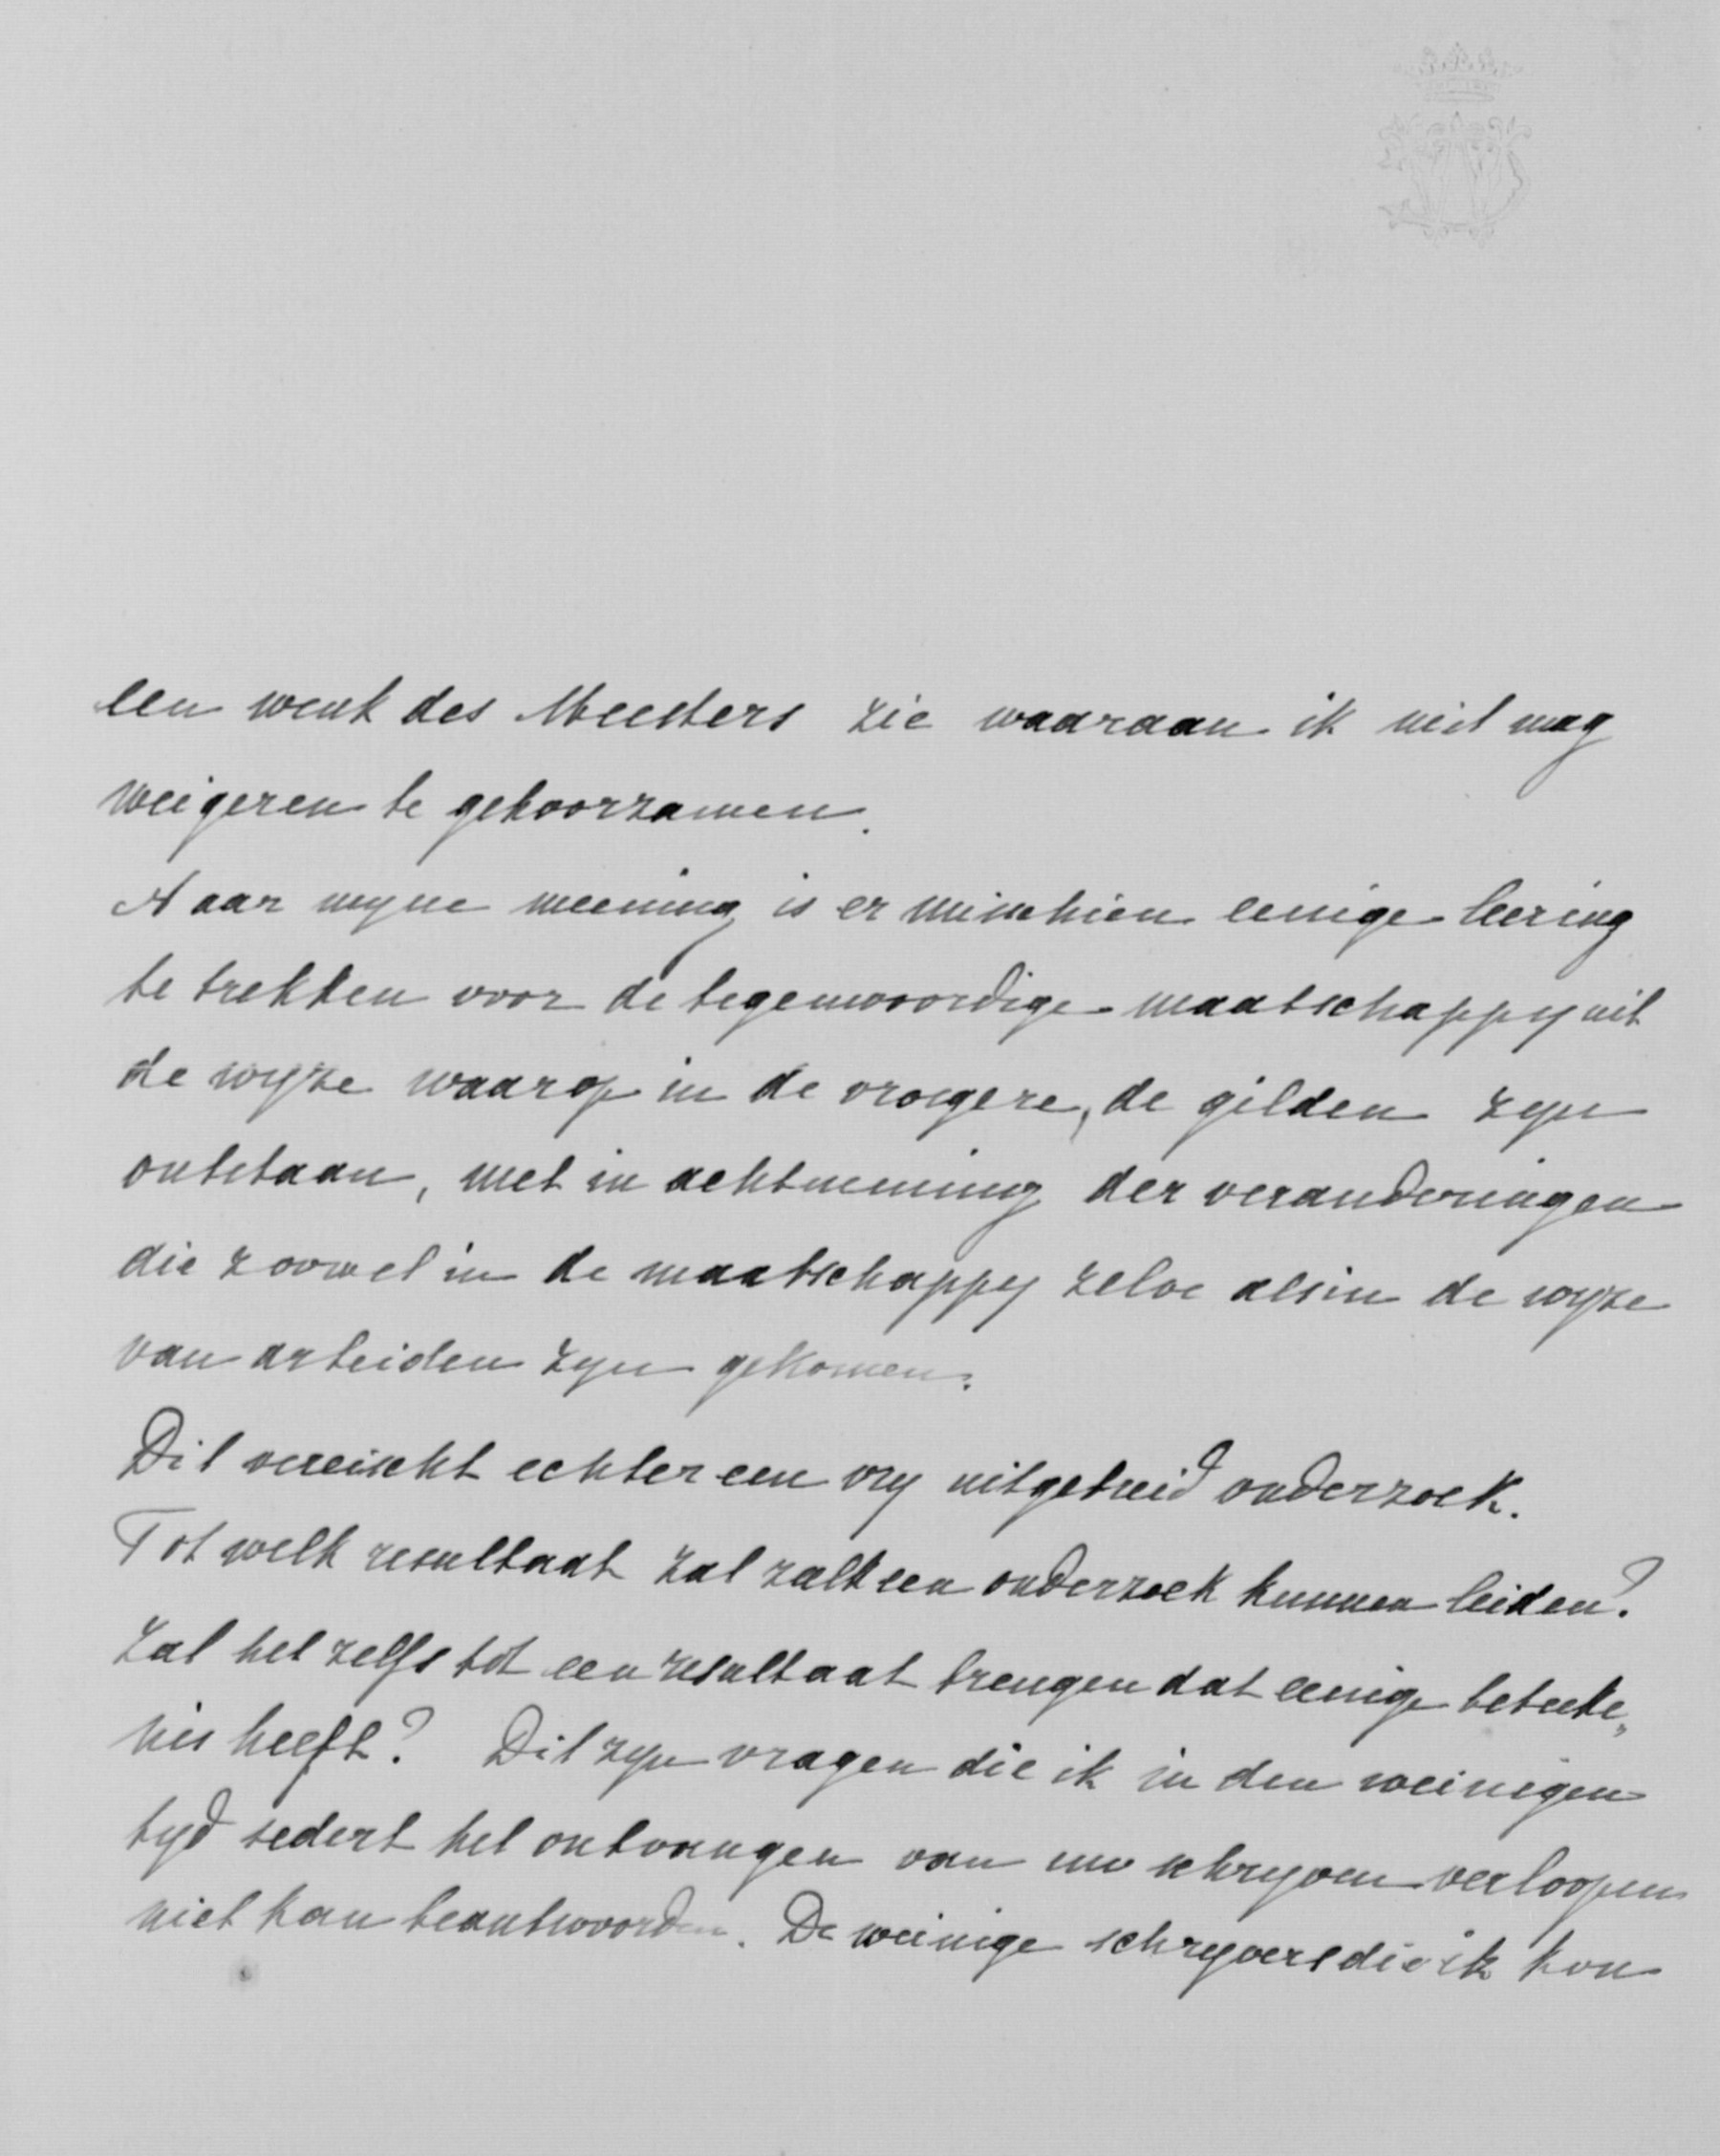 een wenk des Meesters zie waaraan ik niet mag
weigeren te gehoorzamen.
Naar myne meening is er misschien eenige leering
te trekken voor de tegenwoordige maatschappy uit
de wyze waarop in de vroegere, de gilden zyn
ontstaan, met in achtneming der veranderingen
die zoowel in de maatschappy zelve als in de wyze
van arbeiden zyn gekomen.
Dit vereischt echter een vry uitgebreid onderzoek.
Tot welk resultaat zal zulk een onderzoek kunnen leiden?
Zal het zelfs tot een resultaat brengen dat eenige beteeke„
nis heeft? Dit zyn vragen die ik in den weinigen
tyd sedert het ontvangen van uw schryven verloopen
niet kan beantwoorden. De weinige schryvers die ik kon